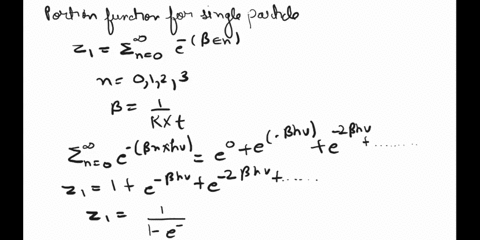 Partion function for single particle
z₁ = Σₙ₌₀^∞ e^-(β∈n)
n = 0,1,2,3
β = 1/(K×t)
Σₙ₌₀^∞ e^-(βn×hν) = e^0 + e^(-βhν) + e^-2βhν + .......
z₁ = 1 + e^-βhν + e^-2βhν + ......
z₁ = 1/(1-e^-